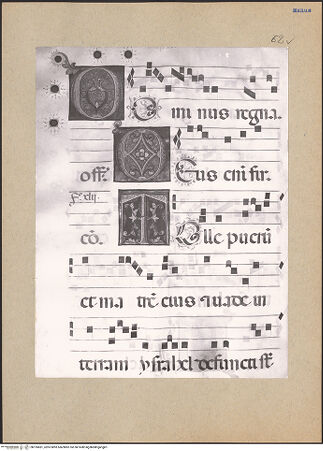 62v
D Omi nus regna.
off. D Eus eni fir.
F. xlii
co. T Olle pueru
et ma tre eius & uade in
terram ysrahel defuncti st